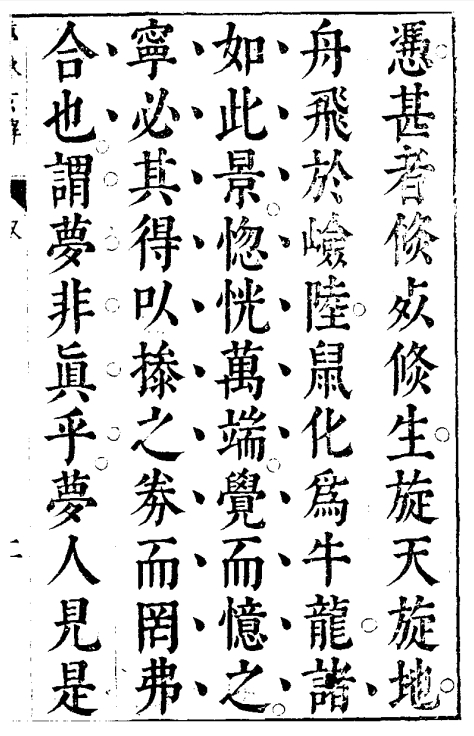 憑甚者倏㱁倏生旋天旋地
舟飛於嶮陸鼠化爲牛龍諸
如此景惚恍萬端覺而憶之
寧必其得以搽之劵而罔弗
合也謂夢非眞乎夢人見是
二